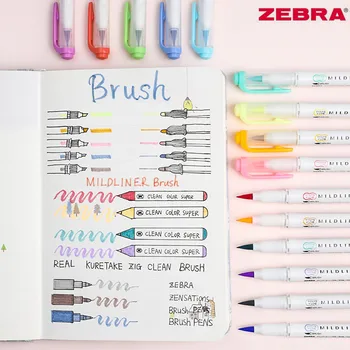 ZEBRA®
Brush
MILDLINER Brush
CLEAN COLOR SUPER
CLEAN COLOR SUPER
CLEAN COLOR SUPER
CLEAN COLOR SUPER
REAL KURETAKE ZIG CLEAN BRUSH
ZEBRA
ZENSATIONS
BRUSH PENS
BRUSH PENS
MILDLI
MILDLIN
MILDLINE
MILDLINE
MILDLINE
MILDLIN
MILDLI
MILDL